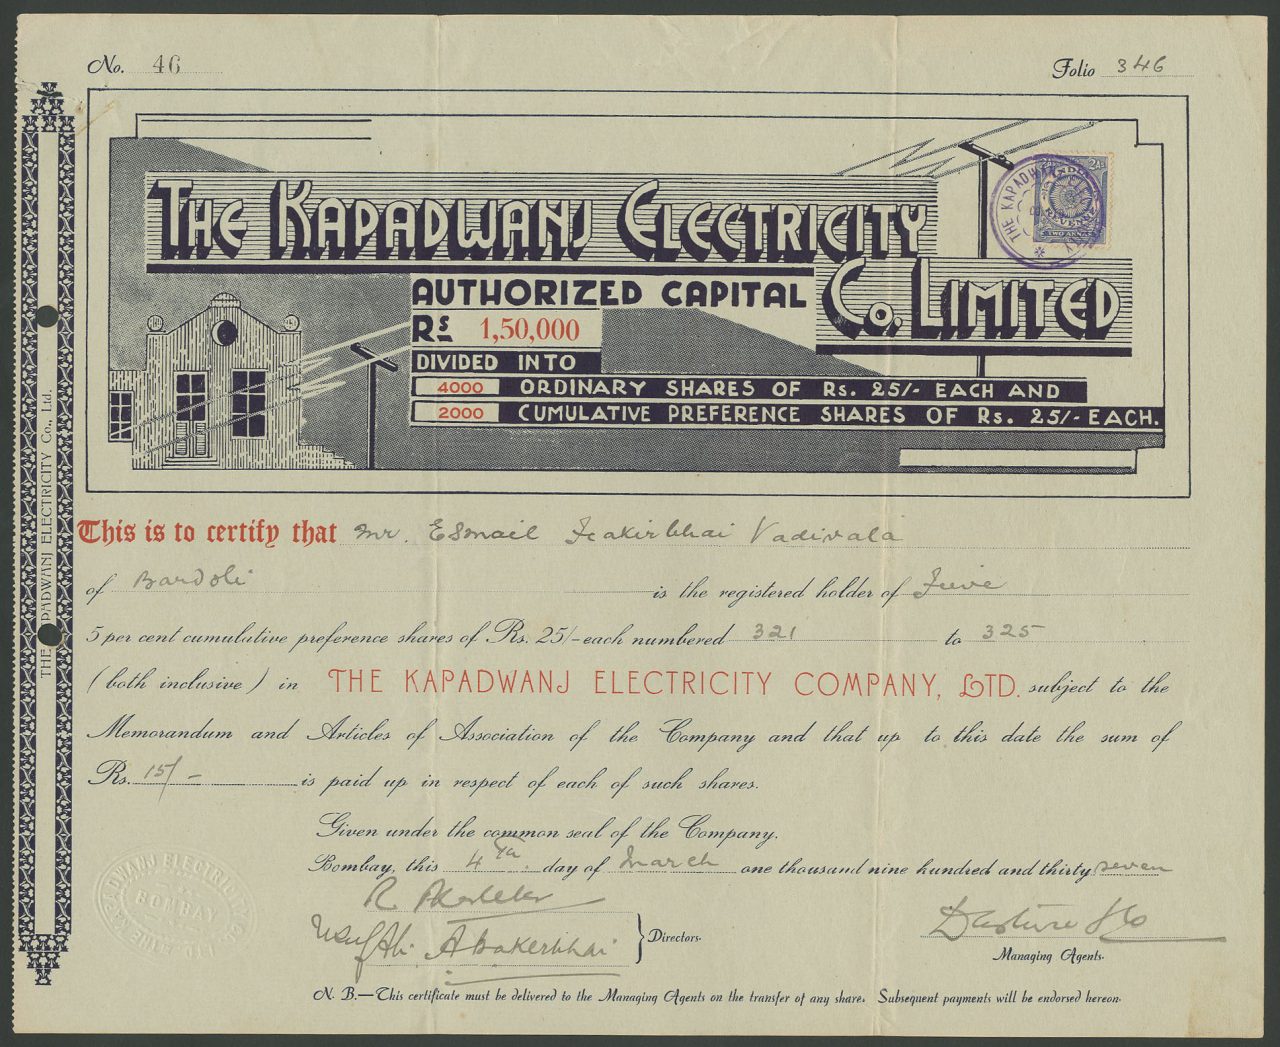 No. 46 Folio 346
THE KAPADWANJ ELECTRICITY
CO. LIMITED
THE KAPADWANJ
2 AS
REVENUE
TWO ANNAS
AUTHORIZED CAPITAL
Rs 1,50,000
DIVIDED INTO
4000 ORDINARY SHARES OF Rs. 25/- EACH AND
2000 CUMULATIVE PREFERENCE SHARES OF Rs. 25/- EACH.
This is to certify that Mr. Esmail Fakirbhai Vadivala
of Bardoli is the registered holder of Five
5 per cent cumulative preference shares of Rs. 25/- each numbered 321 to 325
(both inclusive) in THE KAPADWANJ ELECTRICITY COMPANY, LTD. subject to the
Memorandum and Articles of Association of the Company and that up to this date the sum of
Rs. 15/- is paid up in respect of each of such shares.
Given under the common seal of the Company.
Bombay, this 4th day of March one thousand nine hundred and thirty seven
Directors.
Managing Agents.
N. B.—This certificate must be delivered to the Managing Agents on the transfer of any share. Subsequent payments will be endorsed hereon.
THE KAPADWANJ ELECTRICITY Co., Ltd.
KAPADWANJ ELECTRICITY
BOMBAY